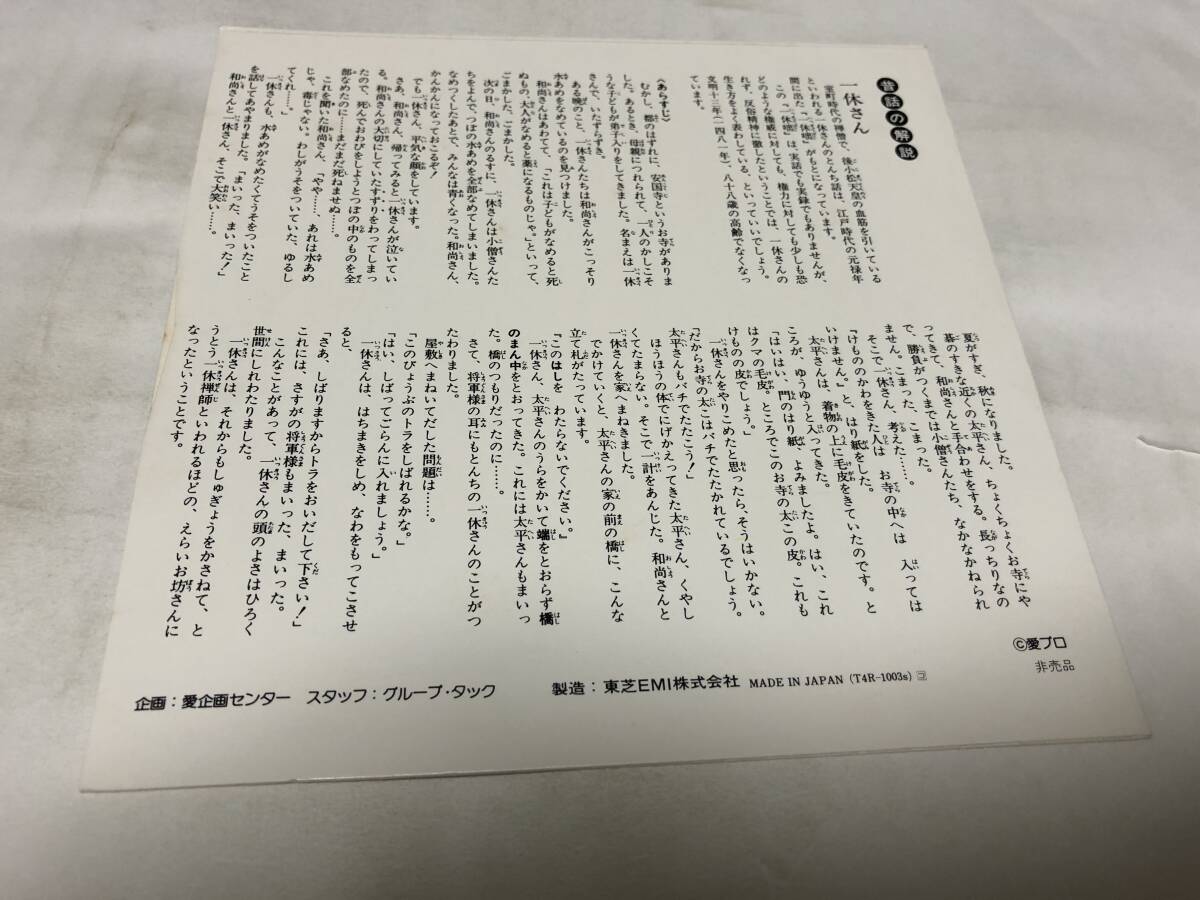 昔話の解説
一休さん
室町時代の禅僧で、後小松天皇の血筋を引いている
といわれる一休さんのとんち話は、江戸時代の元禄年
間に出た『一休噺』がもとになっています。
この『一休噺』は、実話でも実録でもありませんが、
どのような権威に対しても、権力に対しても少しも恐
れず、反俗精神に徹したということでは、一休さんの
生き方をよく表わしている、といっていいでしょう。
文明十三年(一四八一年)、八十八歳の高齢でなくなっ
ています。
〈あらすじ〉
むかし、都のはずれに、安国寺というお寺がありま
した。あるとき、母親につれられて、一人のかしこそ
うな子どもが弟子入りをしてきました。名まえは一休
さんで、いたずらずき。
ある晩のこと、一休さんたちは和尚さんがこっそり
水あめをなめているのを見つけました。
和尚さんはあわてて、「これは子どもがなめると死
ぬもの、大人がなめると薬になるものじゃ。」といって、
ごまかした、ごまかした。
次の日、和尚さんのるすに、一休さんは小僧さんた
ちをよんで、つぼの水あめを全部なめてしまいました。
なめつくしたあとで、みんなは青くなった。和尚さん、
かんかんになっておこるぞ!
でも一休さん、平気な顔をしています。
さあ、和尚さん、帰ってみると一休さんが泣いてい
る。和尚さんの大切にしていたすずりをわってしまっ
たので、死んでおわびをしようとつぼの中のものを全
部なめたのに……まだまだ死ねませぬ……。
これを聞いた和尚さん、「やや……、あれは水あめ
じゃ、毒じゃない。わしがうそをついていた、ゆるし
てくれ……。」
一休さんも、水あめがなめたくてうそをついたこと
を話してあやまりました。「まいった、まいった!」
和尚さんと一休さん、そこで大笑い……。
夏がすぎ、秋になりました。ちょくちょくお寺にや
ってきて、和尚さんと手合わせをする。長っちりなの
碁のすきな近くの太平さん、
で、勝負がつくまでは小僧さんたち、なかなかねられ
ません。こまった、こまった。
そこで一休さん、考えた……。
『けもののかわをきた人は お寺の中へは 入っては
いけません。』と、はり紙をした。
太平さんは、着物の上に毛皮をきていたのです。と
ころが、ゆうゆうと入ってきた。
「はいはい、門のはり紙、よみましたよ。はい、これ
はクマの毛皮。ところでこのお寺の太この皮。これも
けものの皮でしょう。」
一休さんをやりこめたと思ったら、そうはいかない。
「だからお寺の太こはバチでたたかれているでしょう。
太平さんもバチでたたこう!」
ほうほうの体でにげかえってきた太平さん、くやし
くてたまらない。そこで一計をあんじた。和尚さんと
一休さんを家へまねきました。
でかけていくと、太平さんの家の前の橋に、こんな
立て札がたっています。
『このはしを わたらないでください。』
一休さん、太平さんのうらをかいて端をとおらず橋
のまん中をとおってきた。これには太平さんもまいっ
た。橋のつもりだったのに……。
さて、将軍様の耳にもとんちの一休さんのことがつ
たわりました。
屋敷へまねいてだした問題は……。
「このびょうぶのトラをしばれるかな。」
「はい、しばってごらんに入れましょう。」
一休さんは、はちまきをしめ、なわをもってこさせ
ると、
「さあ、しばりますからトラをおいだして下さい!」
これには、さすがの将軍様もまいった、まいった。
こんなことがあって、一休さんの頭のよさはひろく
世間にしれわたりました。
一休さんは、それからもしゅぎょうをかさねて、と
うとう一休禅師といわれるほどの、えらいお坊さんに
なったということです。
©愛プロ
非売品
企画:愛企画センター スタッフ:グループ・タック
製造:東芝EMI株式会社 MADE IN JAPAN (T4R-1003s) コ